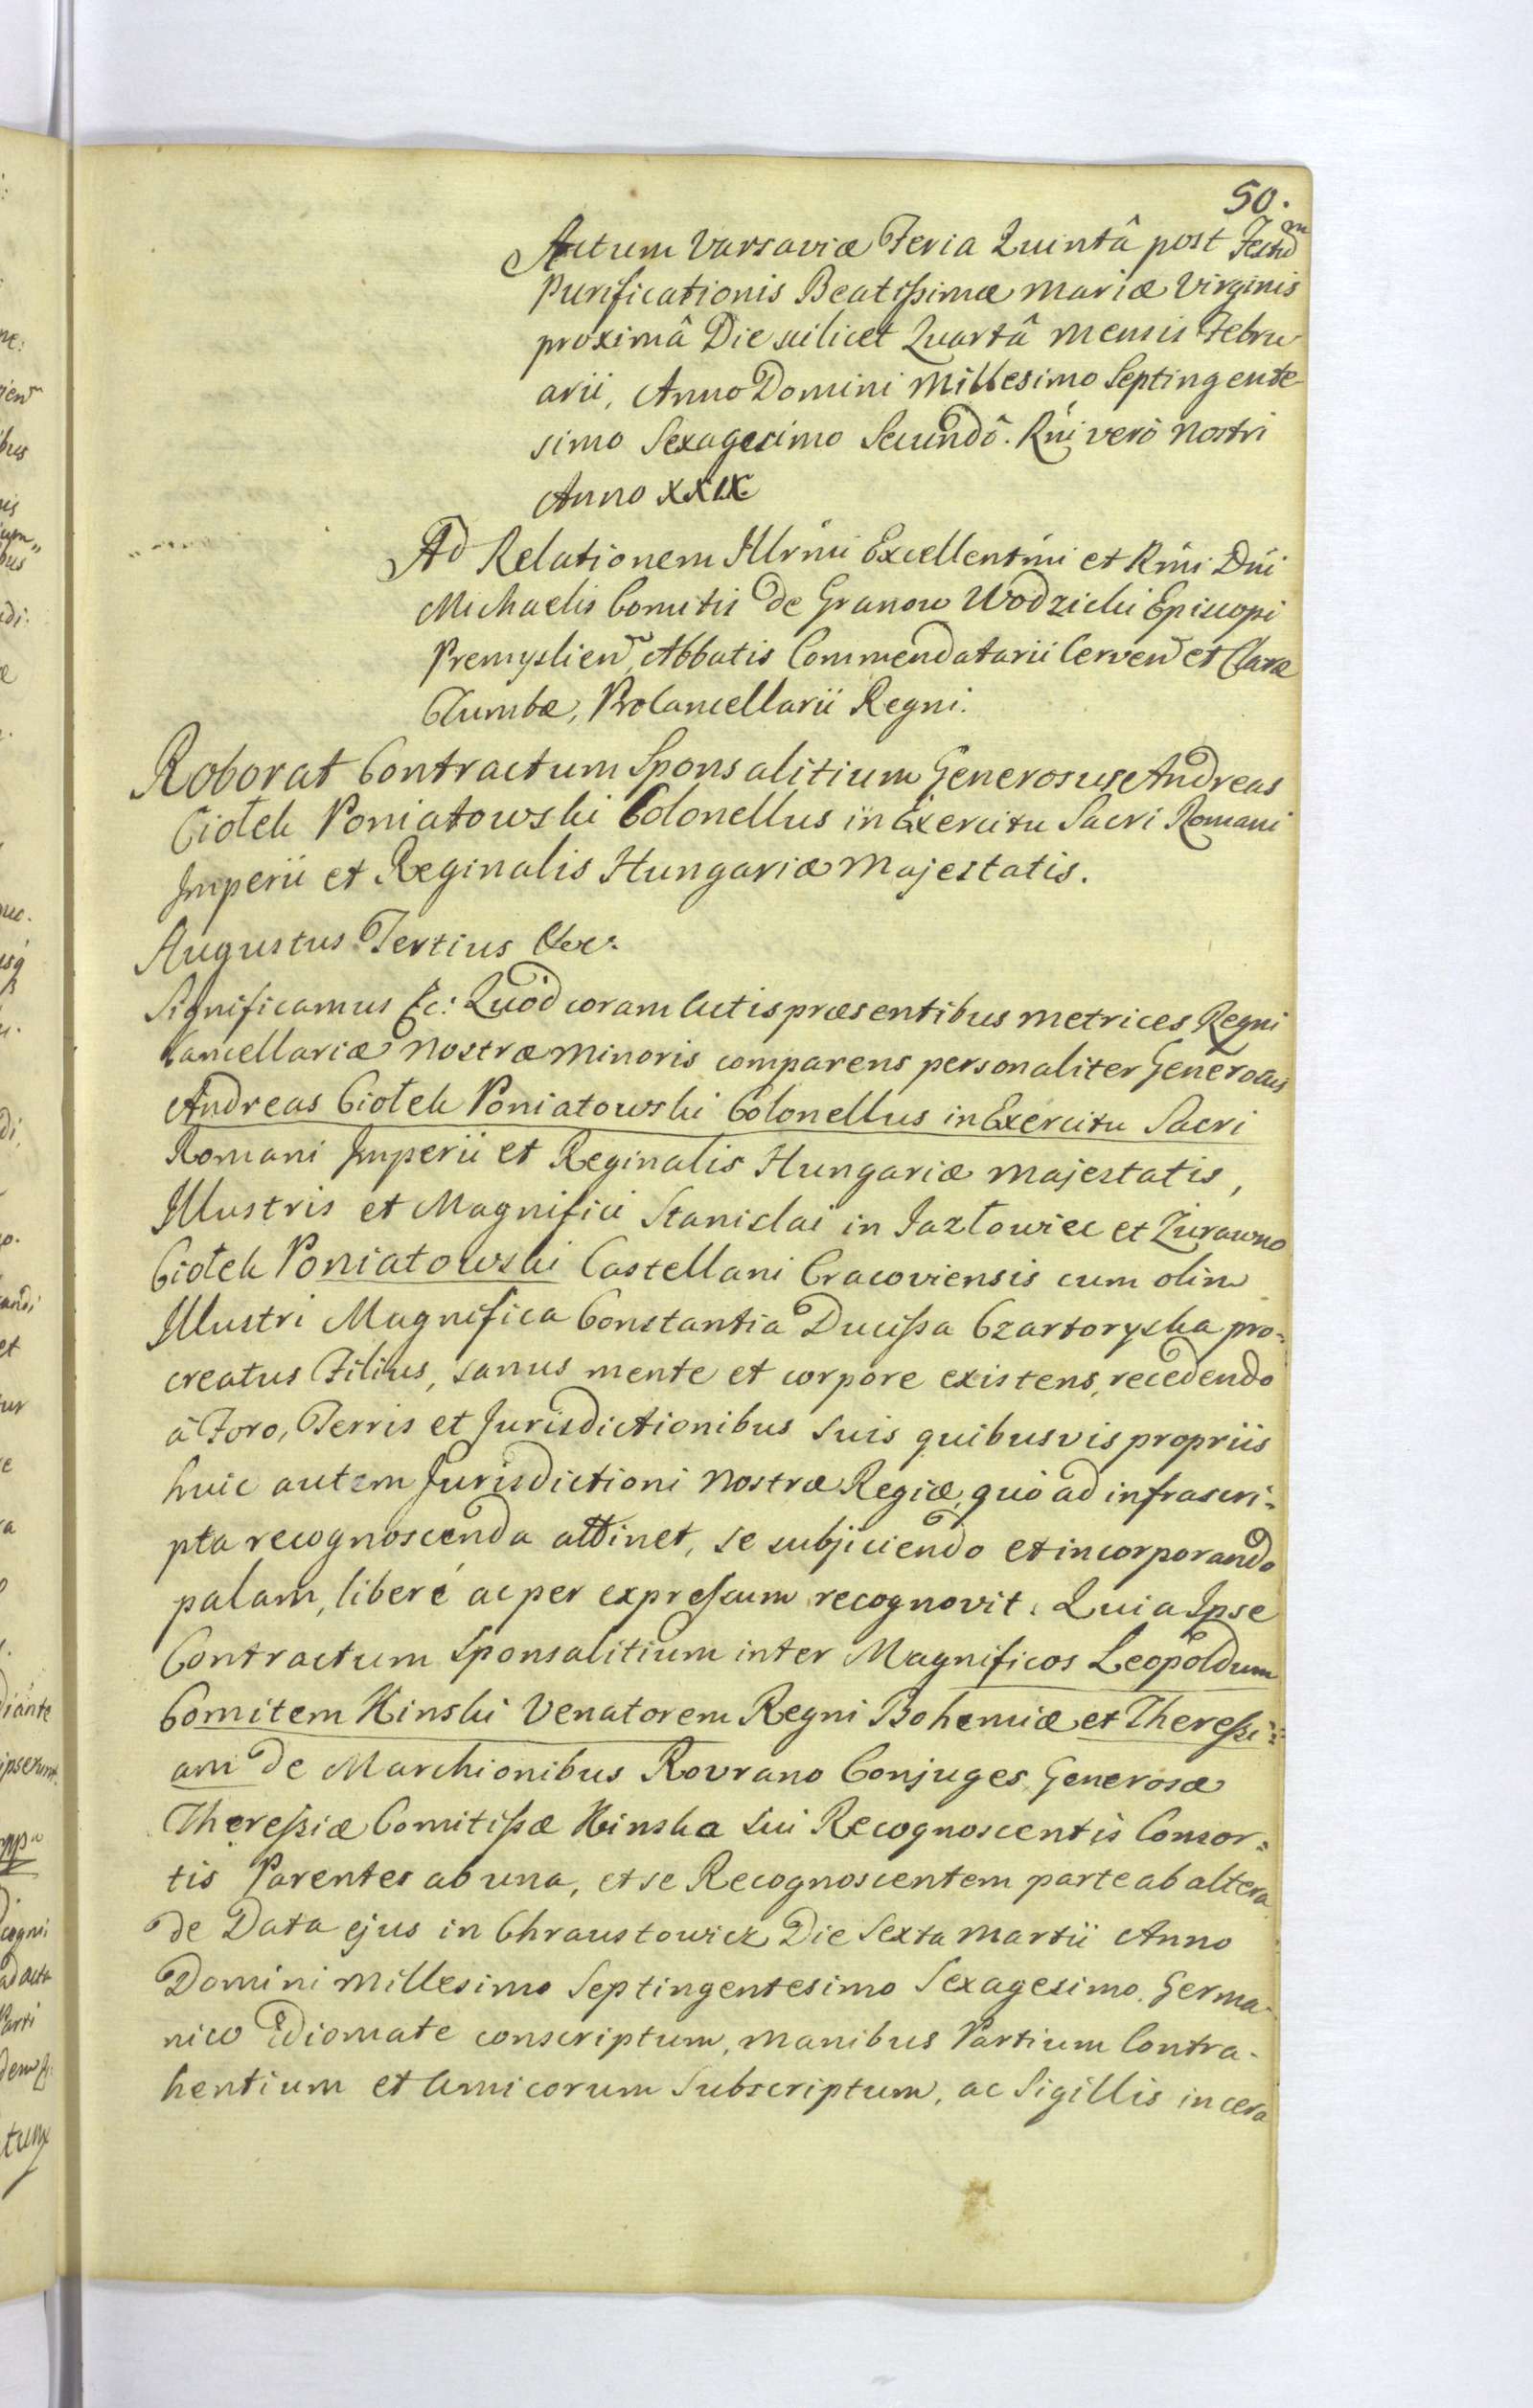 50.
Actum Varsaviæ Feria Quintâ post Festũ
Purificationis Beatißimæ Mariæ Virginis
proximâ Die scilicet Quartâ Mensis Febru-
arii, Anno Domini Millesimo Septingente-
simo Sexagesimo Secundô. Rńi verò Nostri
Anno XXIX
Ad Relationem Illrńii Excellentḿi et Rḿi Dńi
Michaelis Comitis de Granow Wodzicki Episcopi
Premyslien, Abbatis Commendatarii Cerven et Claræ
Tumbæ, Procancellarii Regni.
Roborat Contractum Sponsalitium Generosus Andreas
Ciołek Poniatowski Colonellus in Exercitu Sacri Romani
Imperii et Reginalis Hungariæ Majestatis.
Augustus Tertius &c:
Significamus &c: Quòd coram Actis præsentibus Metrices Regni
Cancellariæ Nostræ Minoris comparens personaliter Generosus
Andreas Ciołek Poniatowski Colonellus in Exercitu Sacri
Romani Imperii et Reginalis Hungariæ Majestatis,
Illustris et Magnifici Stanislai in Jazłowiec et Zurawno
Ciołek Poniatowski Castellani Cracoviensis cum olim
Illustri Magnifica Constantia Ducißa Czartoryska pro-
creatus Filius, sanus mente et corpore existens, recedendo
à Foro, Terris et Jurisdictionibus suis quibusvis propriis
huic autem Jurisdictioni Nostræ Regiæ, quò ad infrascri-
pta recognoscenda attinet, se subjiciendo et incorporando
palam, liberé ac per expreßum recognovit. Quia Ipse
Contractum Sponsalitium inter Magnificos Leopoldum
Comitem Kinski Venatorem Regni Bohemiæ et Thereßi-
am de Marchionibus Rovrano Conjuges Generosæ
Thereßiæ Comitißæ Kinska sui Recognoscentis Consor-
tis Parentes ab una, et se Recognoscentem parte ab altera
de Data ejus in Chraustowicz Die Sexta Martii Anno
Domini Millesimo Septingentesimo Sexagesimo. Germa-
nico Idiomate conscriptum, manibus Partium Contra-
hentium et Amicorum Subscriptum, ac Sigillis in cera